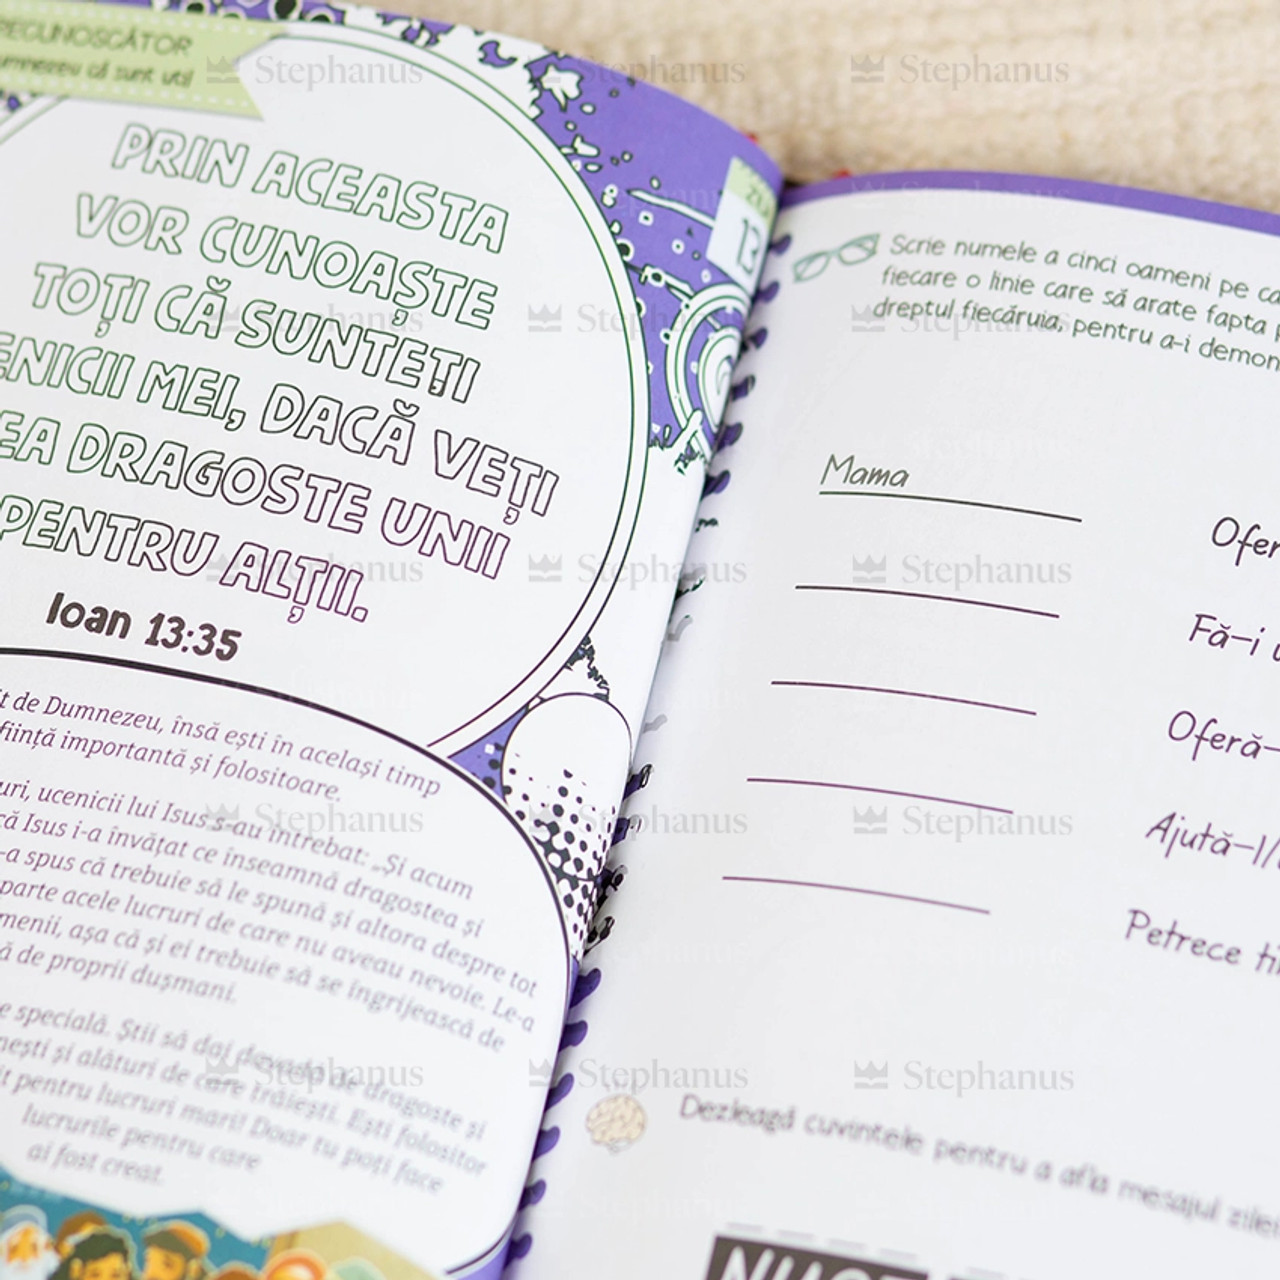 RECUNOSCĂTOR
că sunt util
PRIN ACEASTA
VOR CUNOAȘTE
TOȚI CĂ SUNTEȚI
ENICII MEI, DACĂ VEȚI
EA DRAGOSTE UNII
PENTRU ALȚII.
Ioan 13:35
it de Dumnezeu, însă ești în același timp
ființă importantă și folositoare.
uri, ucenicii lui Isus s-au întrebat: „Și acum
că Isus i-a învățat ce înseamnă dragostea și
-a spus că trebuie să le spună și altora despre tot
parte acele lucruri de care nu aveau nevoie. Le-a
menii, așa că și ei trebuie să se îngrijească de
ă de proprii dușmani.
e specială. Știi să dai dovadă de dragoste și
nești și alături de care trăiești. Ești folositor
it pentru lucruri mari! Doar tu poți face
lucrurile pentru care
ai fost creat.
ZIUA
13
Scrie numele a cinci oameni pe ca
fiecare o linie care să arate fapta p
dreptul fiecăruia, pentru a-i demon
Mama
Ofer
Fă-i u
Oferă-
Ajută-l/
Petrece ti
Dezleagă cuvintele pentru a afla mesajul zilei
Stephanus Stephanus Stephanus
Stephanus Stephanus Stephanus
Stephanus Stephanus Stephanus
Stephanus Stephanus Stephanus
Stephanus Stephanus Stephanus